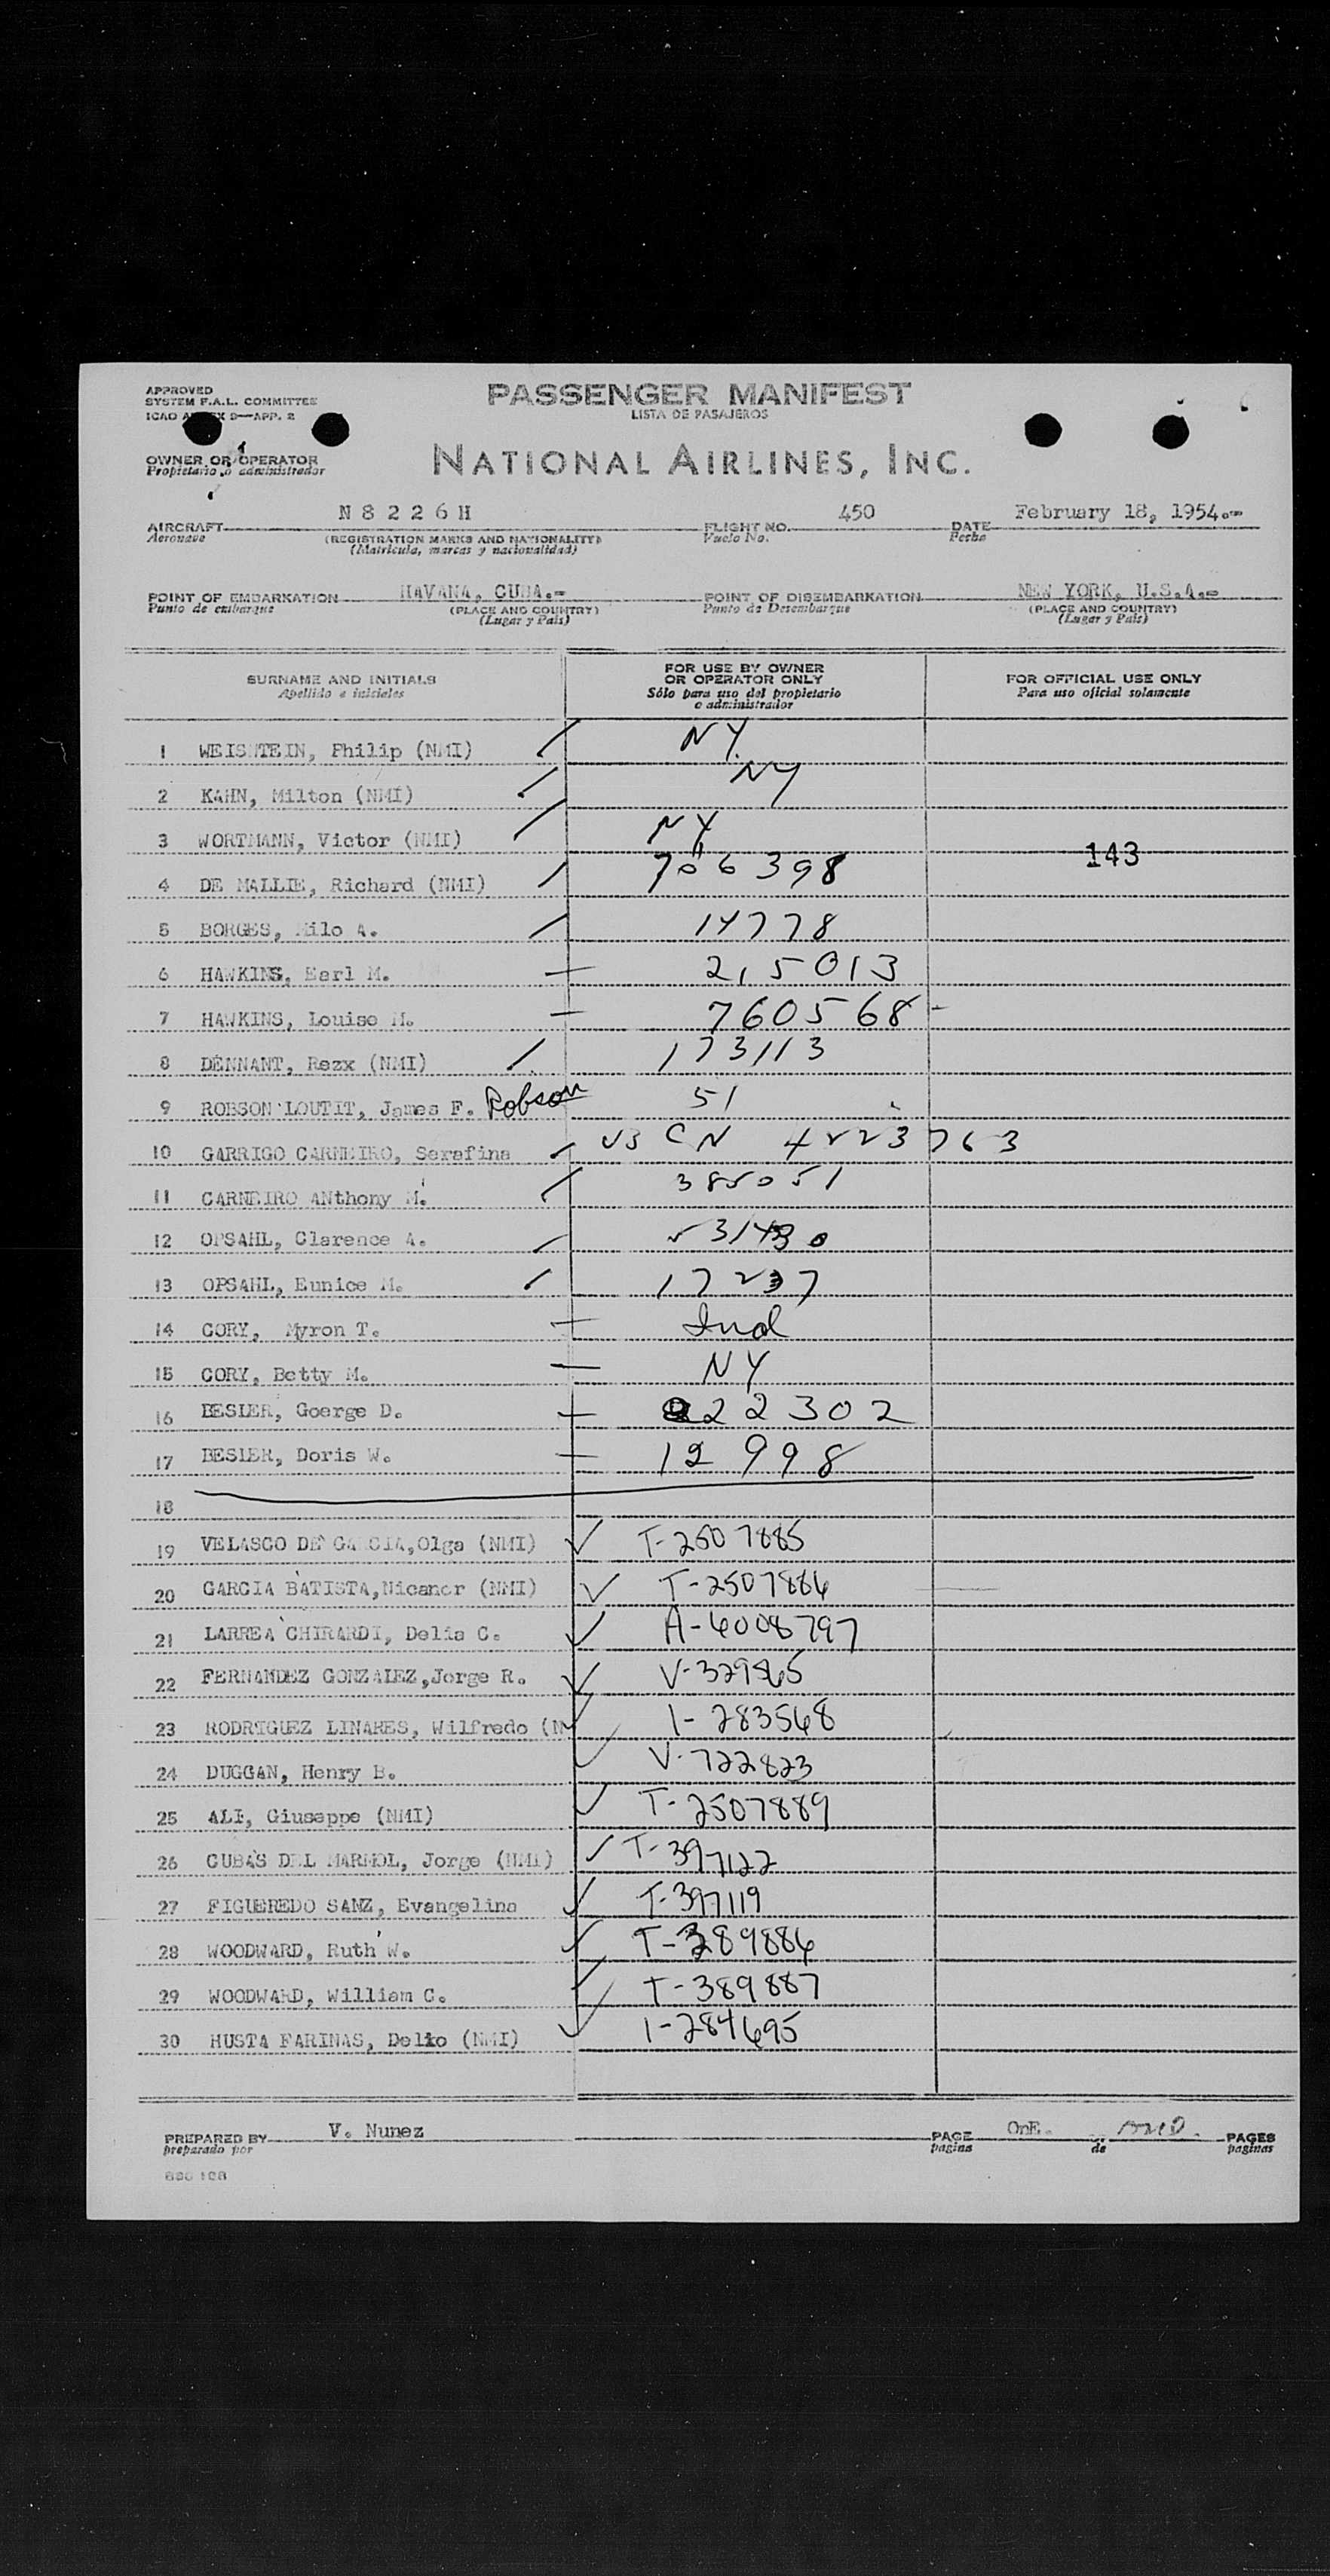 APPROVED
SYSTEM F.A.L. COMMITTEE
ICAO 9—APP. 2
PASSENGER MANIFEST
LISTA DE PASAJEROS
OWNER OR OPERATOR
Propietario o administrador
NATIONAL AIRLINES, INC.
AIRCRAFT N 8 2 2 6 H FLIGHT NO. 450 DATE February 18, 1954.-
Aeronave (REGISTRATION MARKS AND NATIONALITY) Vuelo No. Fecha
(Matricula, marcas y nacionalidad)
POINT OF EMBARKATION HAVANA, CUBA.- POINT OF DISEMBARKATION NEW YORK, U.S.A.-
Punto de embarque (PLACE AND COUNTRY) Punto de Desembarque (PLACE AND COUNTRY)
(Lugar y Pais) (Lugar y Pais)
SURNAME AND INITIALS
Apellido e iniciales
FOR USE BY OWNER
OR OPERATOR ONLY
Sólo para uso del propietario
o administrador
FOR OFFICIAL USE ONLY
Para uso oficial solamente
1 WEISNTEIN, Philip (NMI) NY.
2 KAHN, Milton (NMI) NY
3 WORTMANN, Victor (NMI) NY
143
4 DE MALLIE, Richard (NMI) 706398
5 BORGES, Milo A. 14778
6 HAWKINS, Earl M. 215013
7 HAWKINS, Louise M. 760568
8 DENNANT, Rezx (NMI) 173113
9 ROBSON LOUTIT, James F. Robson 51
10 GARRIGO CARNEIRO, Serafina US CN 4223763
11 CARNEIRO ANthony M. 385051
12 OPSAHL, Clarence A.
13 OPSAHL, Eunice M. 17237
14 CORY, Myron T. Ind
15 CORY, Betty M. NY
16 BESIER, Goerge D. 222302
17 BESIER, Doris W. 12998
18
19 VELASCO DE GARCIA,Olga (NMI) T-2507885
20 GARCIA BATISTA,Nicanor (NMI) T-2507886
21 LARREA CHIRARDI, Delia C. A-6008797
22 FERNANDEZ GONZALEZ,Jorge R. V-329865
23 RODRIGUEZ LINARES, Wilfredo (N 1-283568
24 DUGGAN, Henry B. V-722823
25 ALI, Giuseppe (NMI) T-2507889
26 CUBAS DEL MARMOL, Jorge (NMI) T-397122
27 FIGUEREDO SANZ, Evangelina T-397119
28 WOODWARD, Ruth W. T-389886
29 WOODWARD, William C. T-389887
30 HUSTA FARINAS, Delio (NMI) 1-284695
PREPARED BY V. Nunez PAGE OnE. PAGES
preparado por pagina de paginas